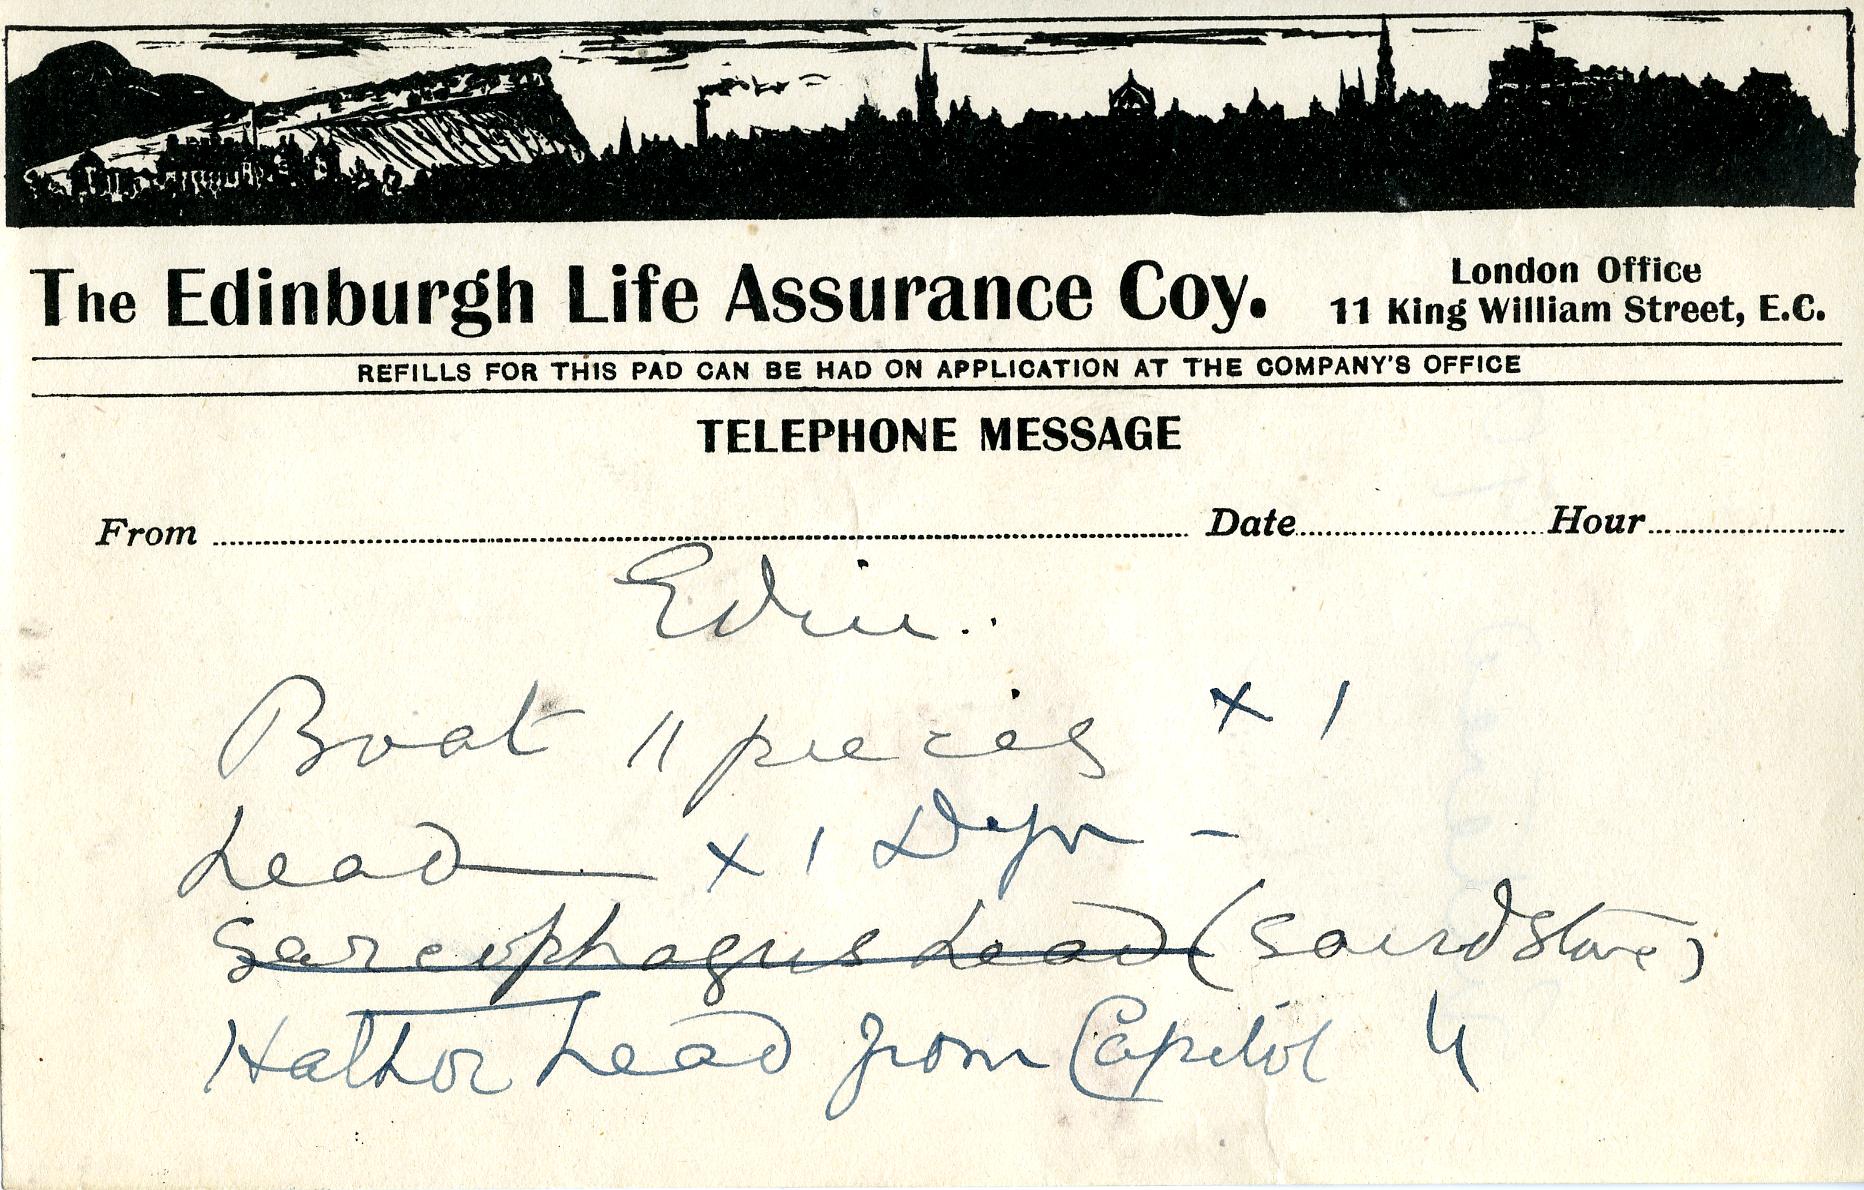 The Edinburgh Life Assurance Coy.
London Office
11 King William Street, E.C.
REFILLS FOR THIS PAD CAN BE HAD ON APPLICATION AT THE COMPANY'S OFFICE
TELEPHONE MESSAGE
From Date Hour
Edin.
Boat 11 pieces x 1
head x 1
Sarcophagus head (sandstone)
Hathor head from Capitol